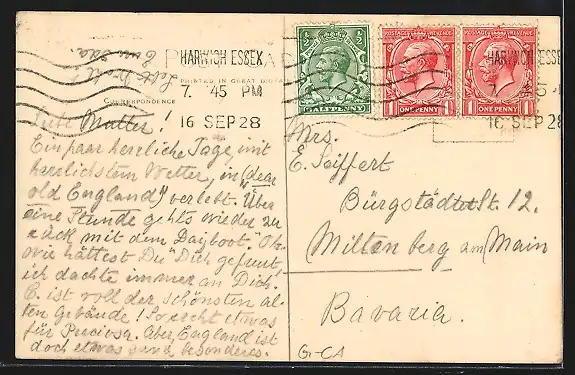 HARWICH ESSEX
7. 45 PM
16 SEP 28
HARWICH ESSE
16 SEP 28
POSTAGE REVENUE
HALFPENNY
1 ONE PENNY 1
1 ONE PENNY 1
PRINTED IN GREAT
CORRESPONDENCE
Liebe Mutter!
Ein paar herrliche Tage, mit
herrlichstem Wetter, in "dear
old England" verlebt. Über
eine Stunde geht's wieder zu
rück mit dem Dayboot. Oh
wie hättest Du Dich gefreut,
ich dachte immer an Dich!
E. ist voll der schönsten al-
ten Gebäude! So recht etwas
für Preciosa. Aber, England ist
doch etwas ganz besonderes.
Mrs.
E. Seiffert
Bürgstädter St. 12.
Miltenberg am Main
Bavaria.
G-CA